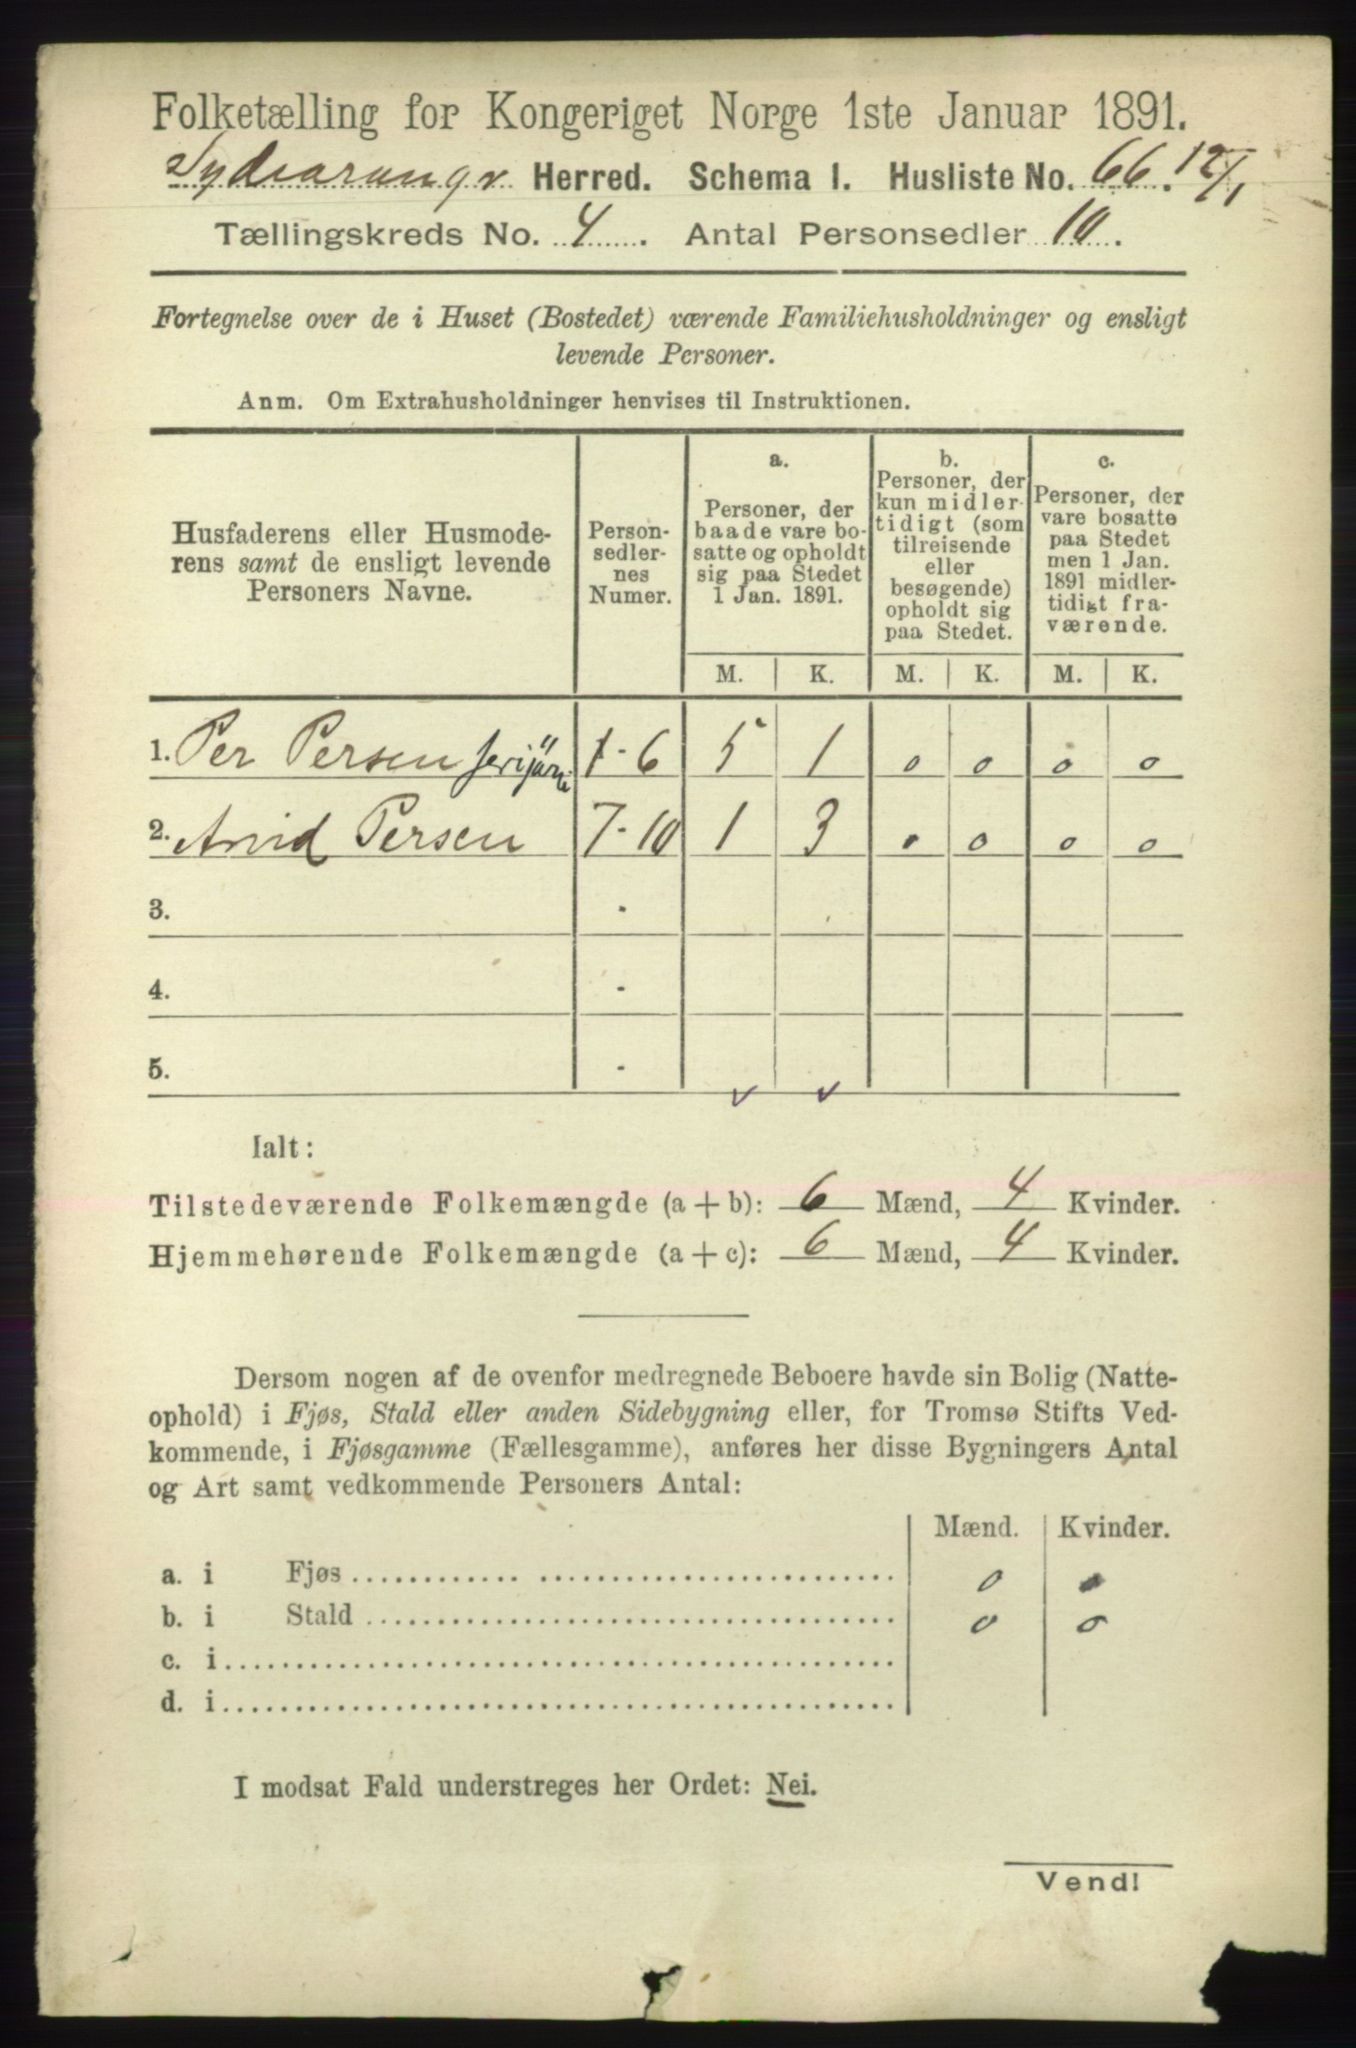 Folketælling for Kongeriget Norge 1ste Januar 1891.
Sydvaranger Herred. Schema 1. Husliste No. 66. 12/1
Tællingskreds No. 4. Antal Personsedler 10.
Fortegnelse over de i Huset (Bostedet) værende Familiehusholdninger og ensligt
levende Personer.
Anm. Om Extrahusholdninger henvises til Instruktionen.
Husfaderens eller Husmode-
rens samt de ensligt levende
Personers Navne.
Person-
sedler-
nes
Numer.
a.
Personer, der
baade vare bo-
satte og opholdt
sig paa Stedet
1 Jan. 1891.
b.
Personer, der
kun midler-
tidigt (som
tilreisende
eller
besøgende)
opholdt sig
paa Stedet.
c.
Personer, der
vare bosatte
paa Stedet
men 1 Jan.
1891 midler-
tidigt fra-
værende.
M. K. M. K. M. K.
1. Per Persen 1-6 5 1 0 0 0 0
2. Arvid Persen 7-10 1 3 0 0 0 0
3. -
4. -
5. -
Ialt:
Tilstedeværende Folkemængde (a + b): 6 Mænd, 4 Kvinder.
Hjemmehørende Folkemængde (a + c): 6 Mænd, 4 Kvinder.
Dersom nogen af de ovenfor medregnede Beboere havde sin Bolig (Natte-
ophold) i Fjøs, Stald eller anden Sidebygning eller, for Tromsø Stifts Ved-
kommende, i Fjøsgamme (Fællesgamme), anføres her disse Bygningers Antal
og Art samt vedkommende Personers Antal:
Mænd. Kvinder.
a. i Fjøs 0 0
b. i Stald 0 0
c. i
d. i
I modsat Fald understreges her Ordet: Nei.
Vend!